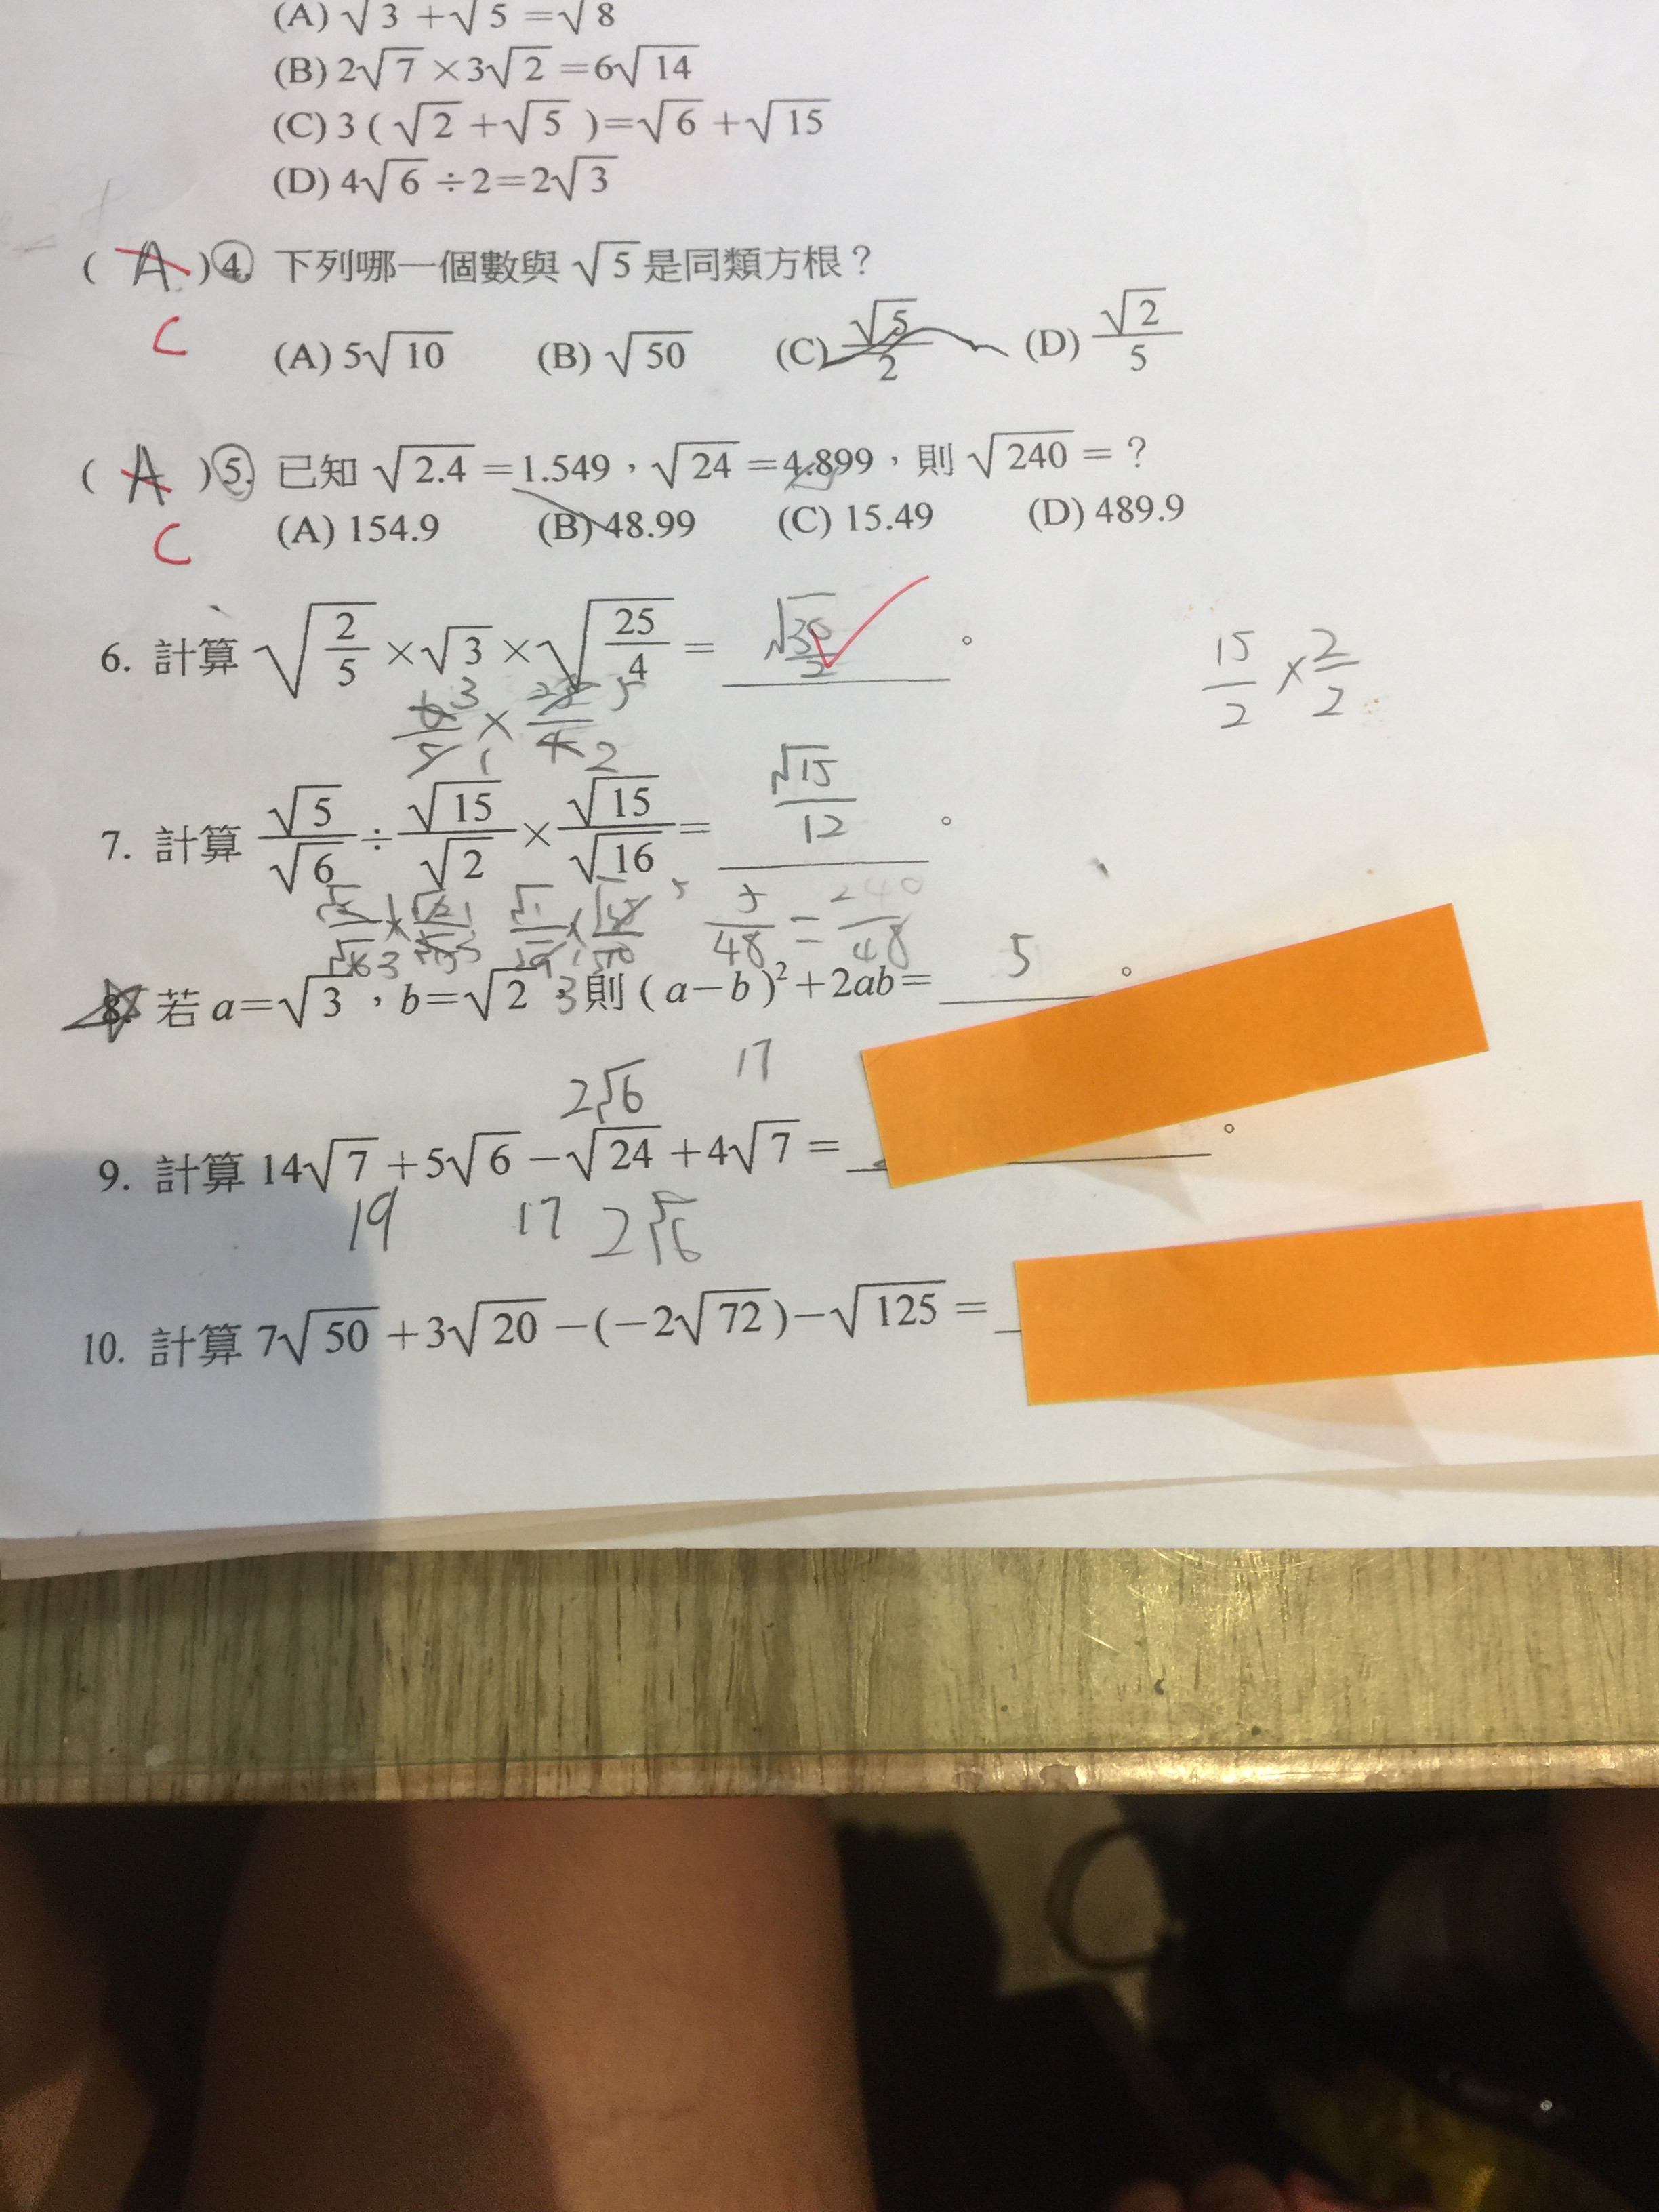 (A) √3 + √5 = √8
(B) 2√7 × 3√2 = 6√14
(C) 3 ( √2 + √5 ) = √6 + √15
(D) 4√6 ÷ 2 = 2√3
( A ) 4. 下列哪一個數與 √5 是同類方根？
C
(A) 5√10 (B) √50 (C) √5/2 (D) √2/5
( A ) 5. 已知 √2.4 = 1.549，√24 = 4.899，則 √240 = ？
C
(A) 154.9 (B) 48.99 (C) 15.49 (D) 489.9
6. 計算 √(2/5) × √3 × √(25/4) = √30/2 。
15/2 × 2/2
6/5 3 1 × 25/4 5 2
7. 計算 √5/√6 ÷ √15/√2 × √15/√16 = √15/12 。
5/48 = 240/48
8. 若 a = √3，b = √2，則 ( a − b )² + 2ab = 5 。
2√6 17
9. 計算 14√7 + 5√6 − √24 + 4√7 = 。
19 17 2√6
10. 計算 7√50 + 3√20 − (−2√72) − √125 =